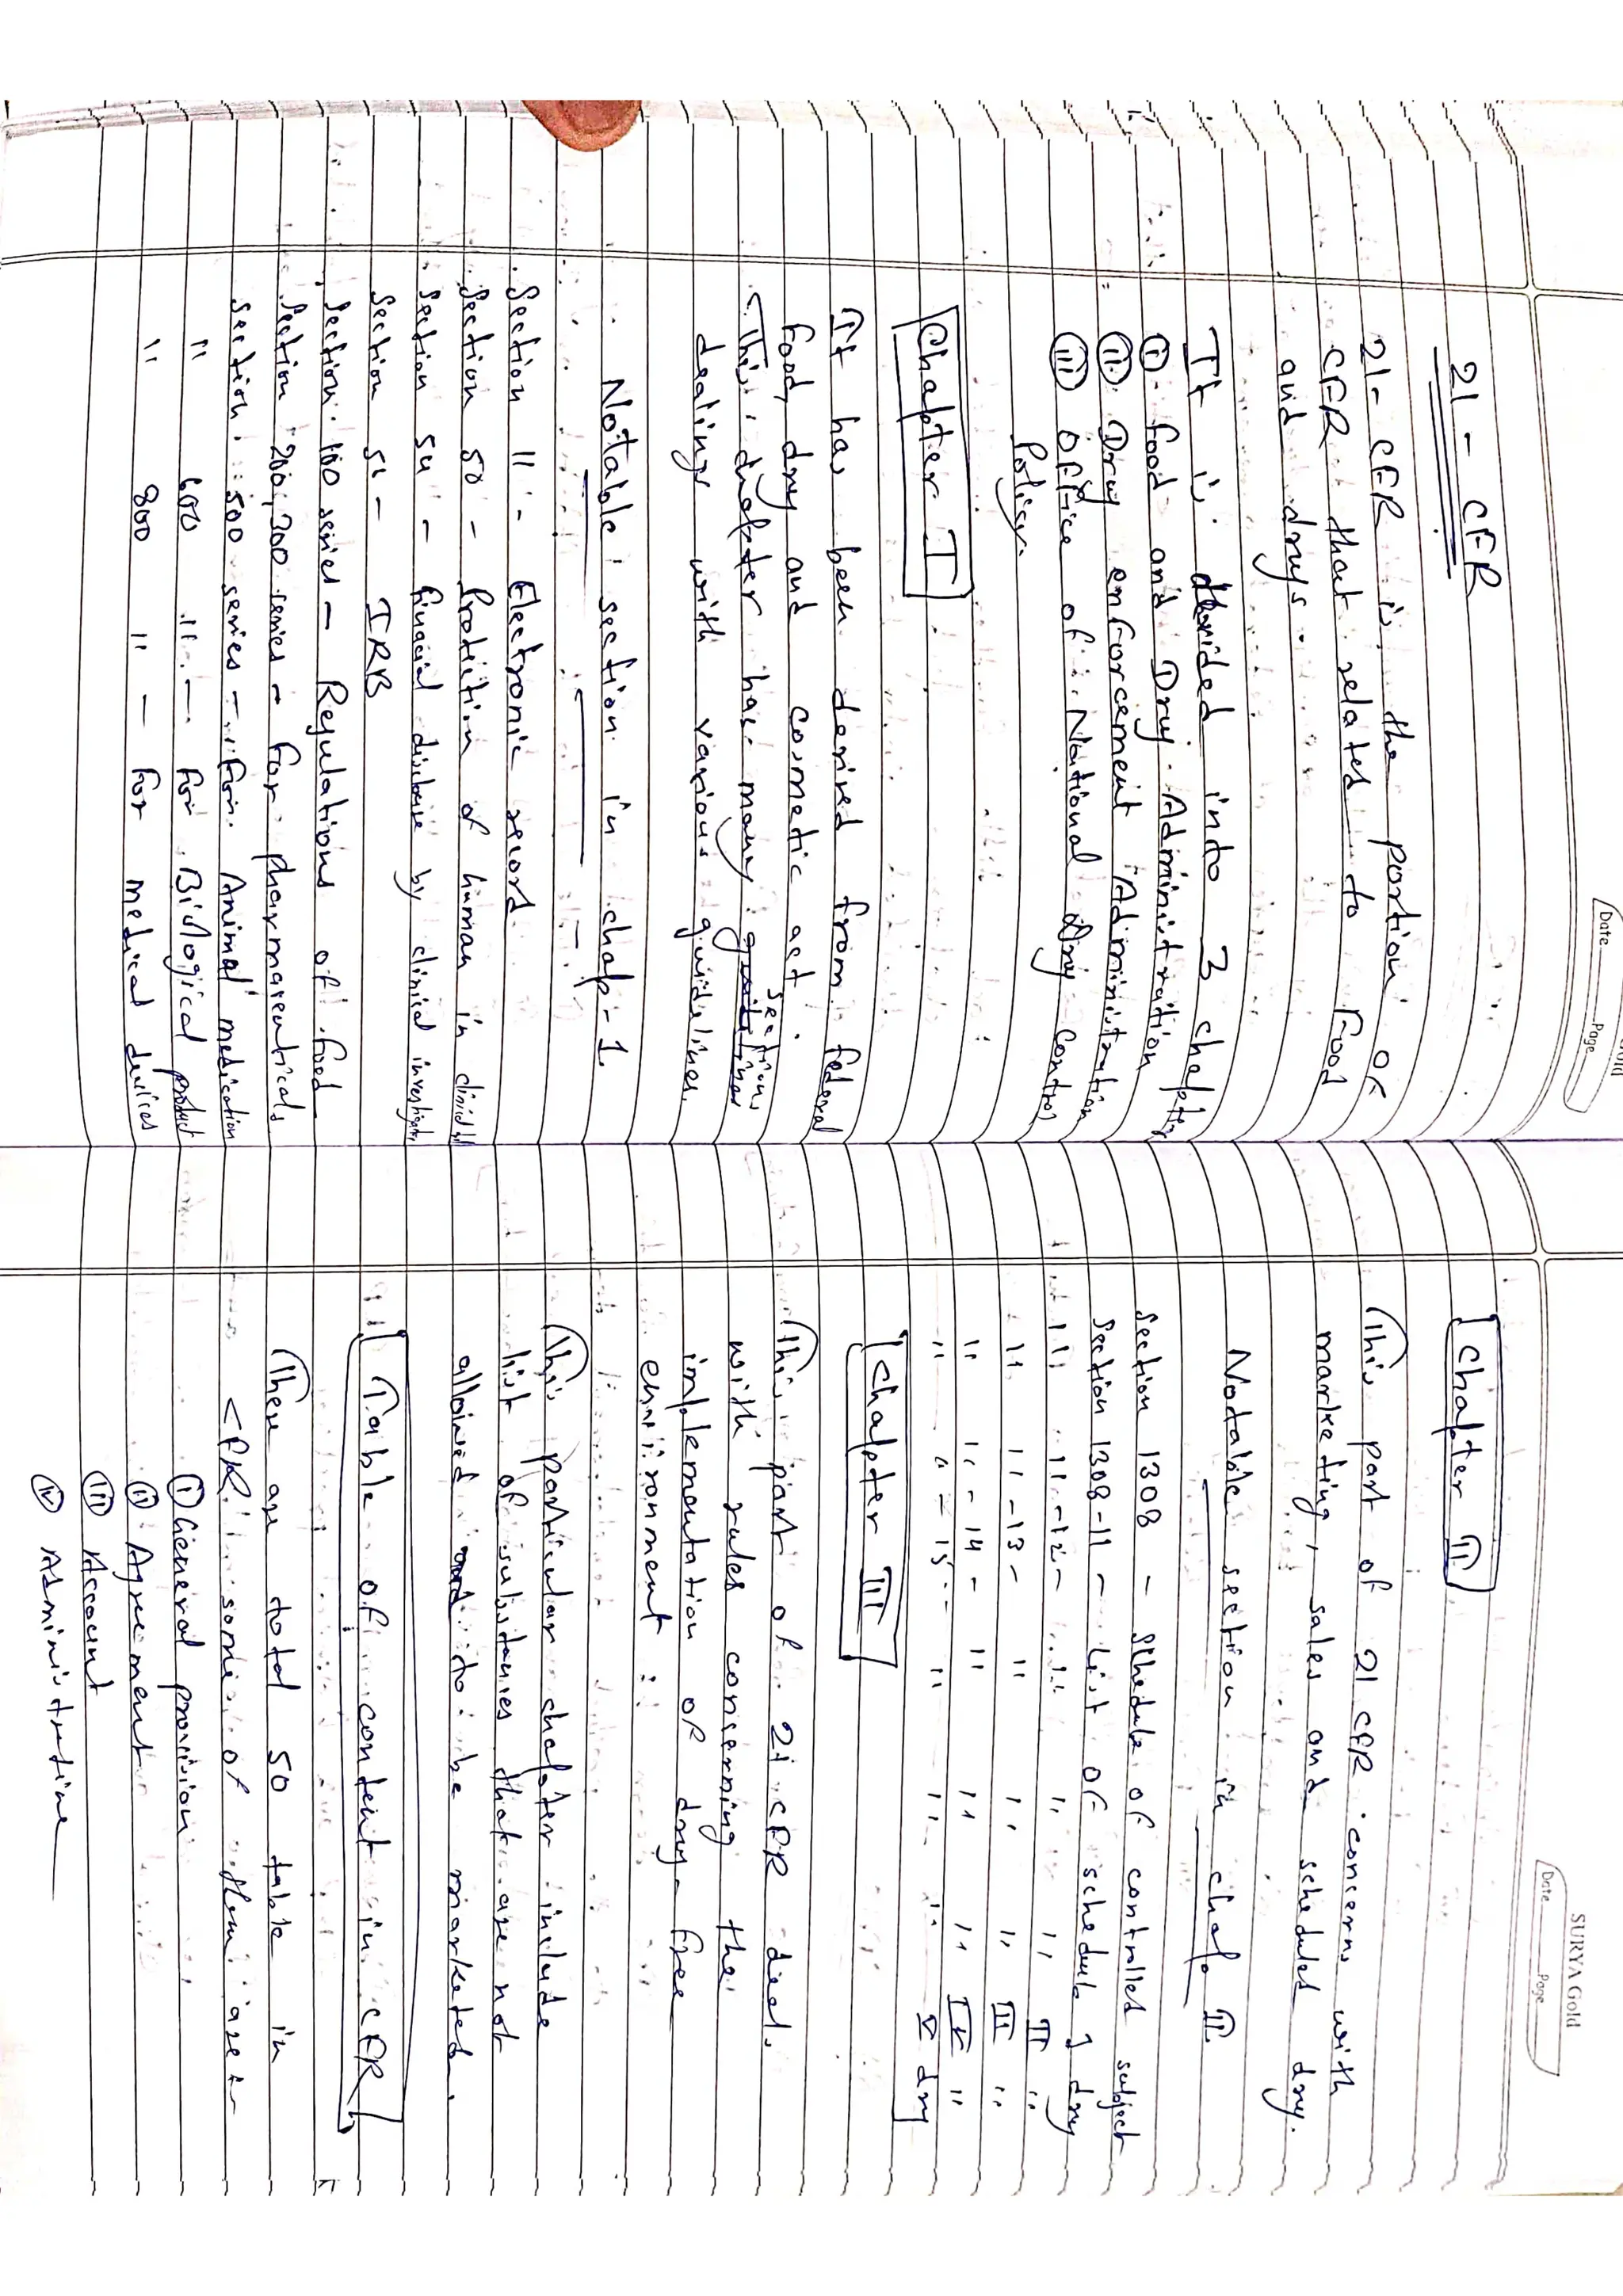 Date
Page
21 - CFR
21- CFR is the portion of
CFR that related to Food
and drugs.
It is divided into 3 chapter
(i) Food and Drug Administration
(ii) Drug enforcement Administration
(iii) Office of National Drug Control
Policy.
Chapter I
It has been derived from federal
Food, drug and cosmetic act.
This chapter has many sections
dealing with various guidelines.
Notable section in chap-1.
Section 11 - Electronic record.
Section 50 - Protection of human in clinical
Section 54 - financial disclosure by clinical investigator
Section 56 - IRB
Section 100 series - Regulations of food
Section 200, 300 series - For pharmaceuticals
Section 500 series - For Animal medication
" 600 " - For Biological product
" 800 " - For medical devices
SURYA Gold
Date
Page
Chapter II
This part of 21 CFR concerns with
marketing, sales and scheduled drug.
Notable section in chap II.
Section 1308 - Schedule of controlled subject
Section 1308-11 - List of schedule I drug
" " -12 - " " " II "
" " -13 - " " " III "
" " -14 - " " " IV "
" " -15 - " " " V drug
Chapter III
This part of 21 CFR deals
with rules concerning the
implementation of drug-free
environment
This particular chapter include
list of substances that are not
allowed to be marketed.
Table of content in CFR
There are total 50 table in
CFR some of them are -
(i) General provision
(ii) Agreement
(iii) Account
(iv) Administrative